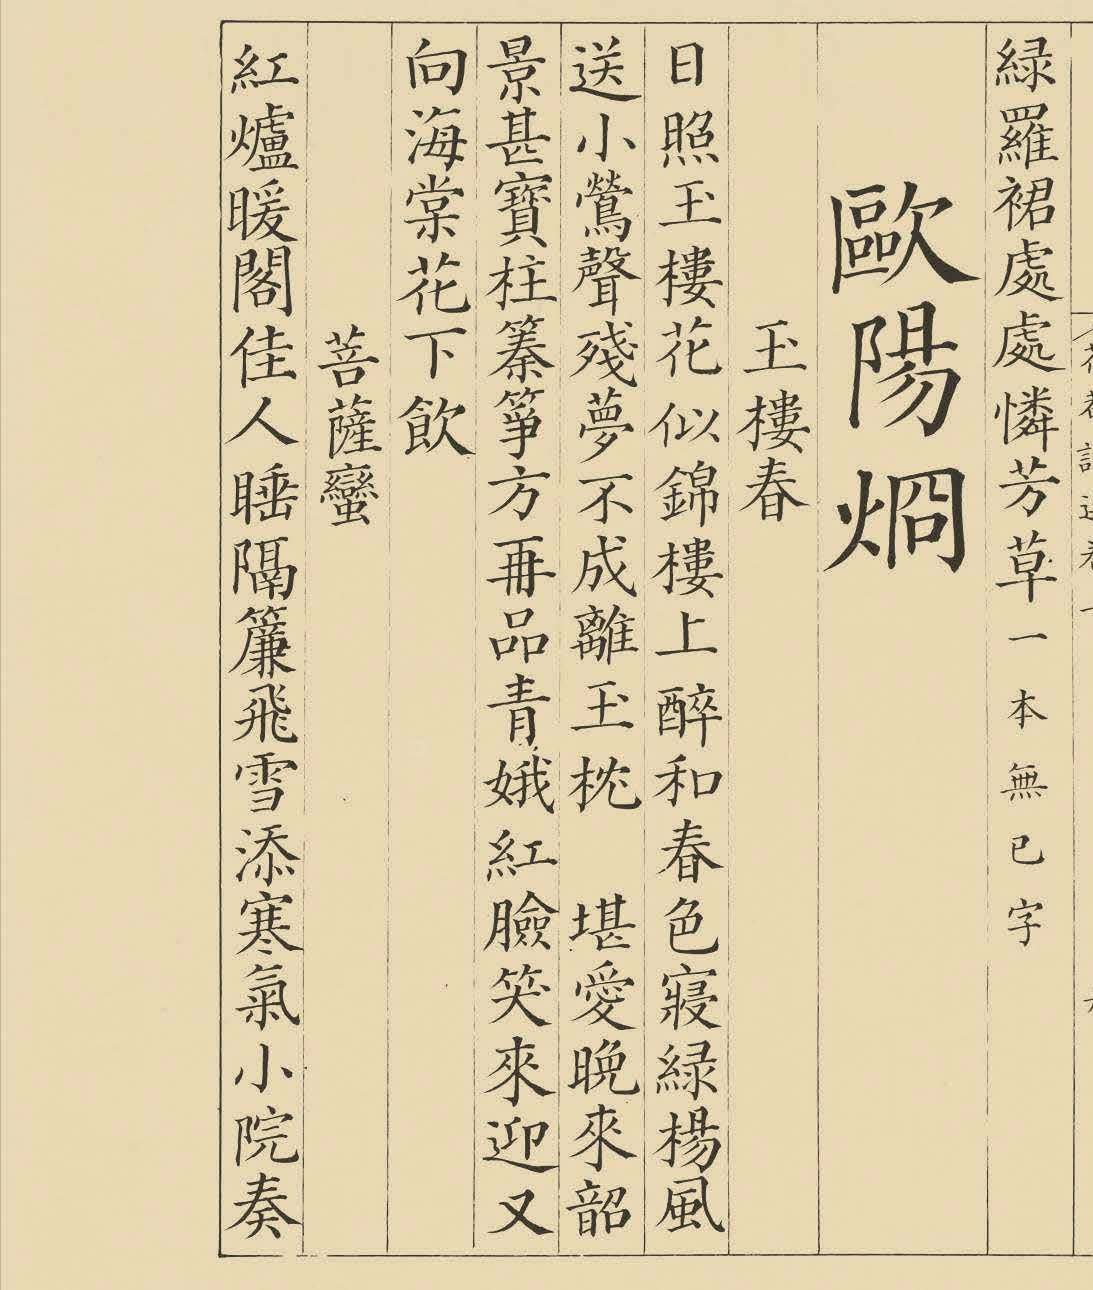 緑羅裙處處憐芳草一本無已字
歐陽烱
玉樓春
日照玉樓花似錦樓上醉和春色寢緑楊風
送小鶯聲殘夢不成離玉枕　堪愛晚來韶
景甚寶柱秦箏方再品青娥紅臉笑來迎又
向海棠花下飲
菩薩蠻
紅爐暖閣佳人睡隔簾飛雪添寒氣小院奏